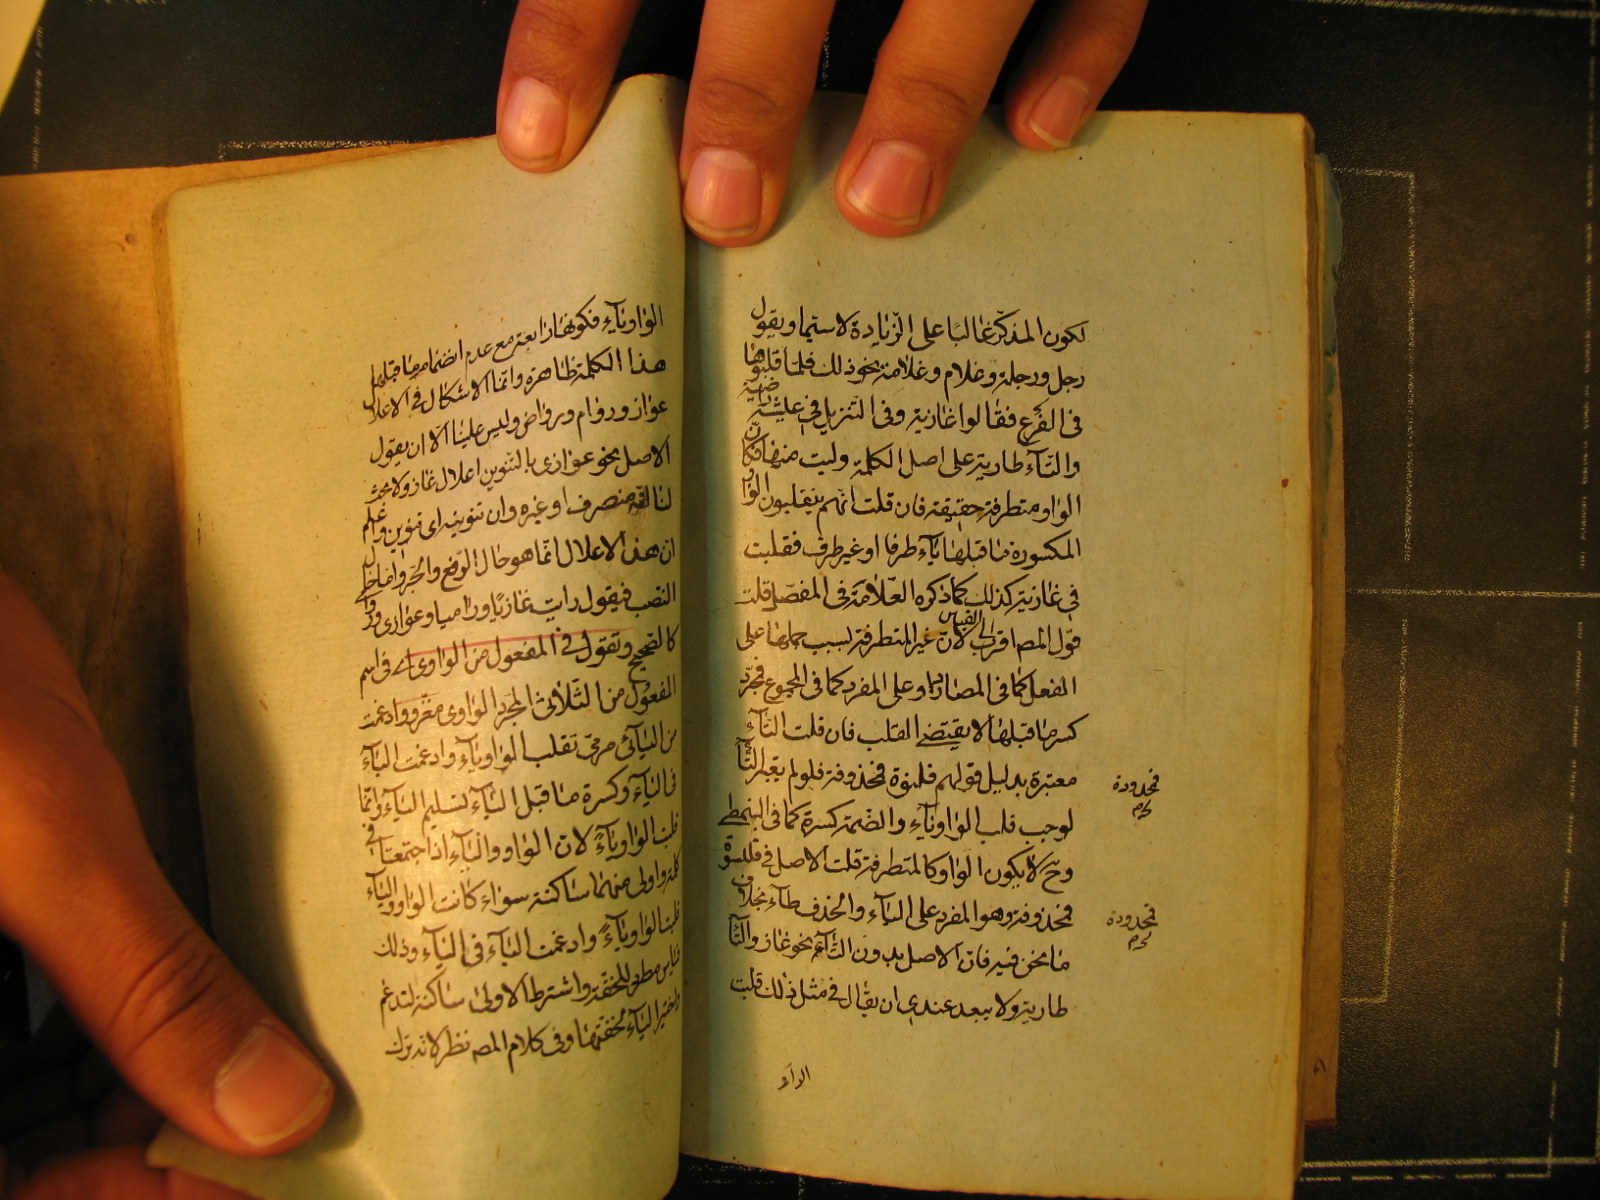 لكون المذكر غالبا على الزيادة لاسيما ويقول
رجل ورجلة وغلام وغلامة نحو ذلك فلما قلبوها
في الفرع فقالوا غازية وفي التنزيل في عيشة راضية
والتاء طارية على اصل الكلمة وليت منها فكان
الواو متطرفة حقيقة فان قلت انهم يقلبون الواو
المكسورة ما قبلها ياء طرفا او غير طرف فقلبت
في غازية كذلك كما ذكره العلامة في المفصل قلت
قول المصـ اقرب الى القياس لان غير المتطرفة لسبب حملها على
الفعل كما في المصادر او على المفرد كما في المجموع فمجرد
كسر ما قبلها لا يقتضى القلب فان قلت التاء
معتبرة بدليل قولهم قلنسوة قمحدوة فلو لم يعتبر التاء
لوجب قلب الواو ياء والضمة كسرة كما في
وح لا يكون الواو كالمتطرفة قلت الاصل في قلنسوة
قمحدوة وهو المفرد على التاء والحذف طاء بخلاف
ما نحن فيه فان الاصل بدون التاء نحو غاز والتاء
طارية ولا يبعد عندي ان يقال في مثل ذلك قلبت
قمحدودة
قمحدودة
الواو
الواو ياء فكونها رابعة مع عدم انضمام ما قبلها
هذا الكلمة ظاهرة وانما الاشكال في الاعلال
عواز وروام ورواض وليس علينا الا ان يقول
الاصل نحو عوازى بالتنوين اعلال غاز ولا بحث
لنا انه منصرف او غيره وان تنوينه اى تنوين واعلم
ان هذا الاعلال انما هو حال الرفع والجر واما حال
النصب فيقول رايت غازيا وراميا وعوازى
كالصحيح وتقول في المفعول من الواوى اى في اسم
المفعول من الثلاثى المجرد الواوى مغزو وادغمت
من اليائى مرمى تقلب الواو ياء وادغمت الياء
في الياء وكسرة ما قبل الياء لتسليم الياء وانما
قلبت الواو ياء لان الواو والياء اذا اجتمعتا في
كلمة واولى منهما ساكنة سواء كانت الواو والياء
قلبت الواو ياء وادغمت الياء في الياء وذلك
قياس مطرد للخفة واشترط الاولى ساكنة لتدغم
واختير الياء لخفتها وفي كلام المصـ نظر لانه ترك